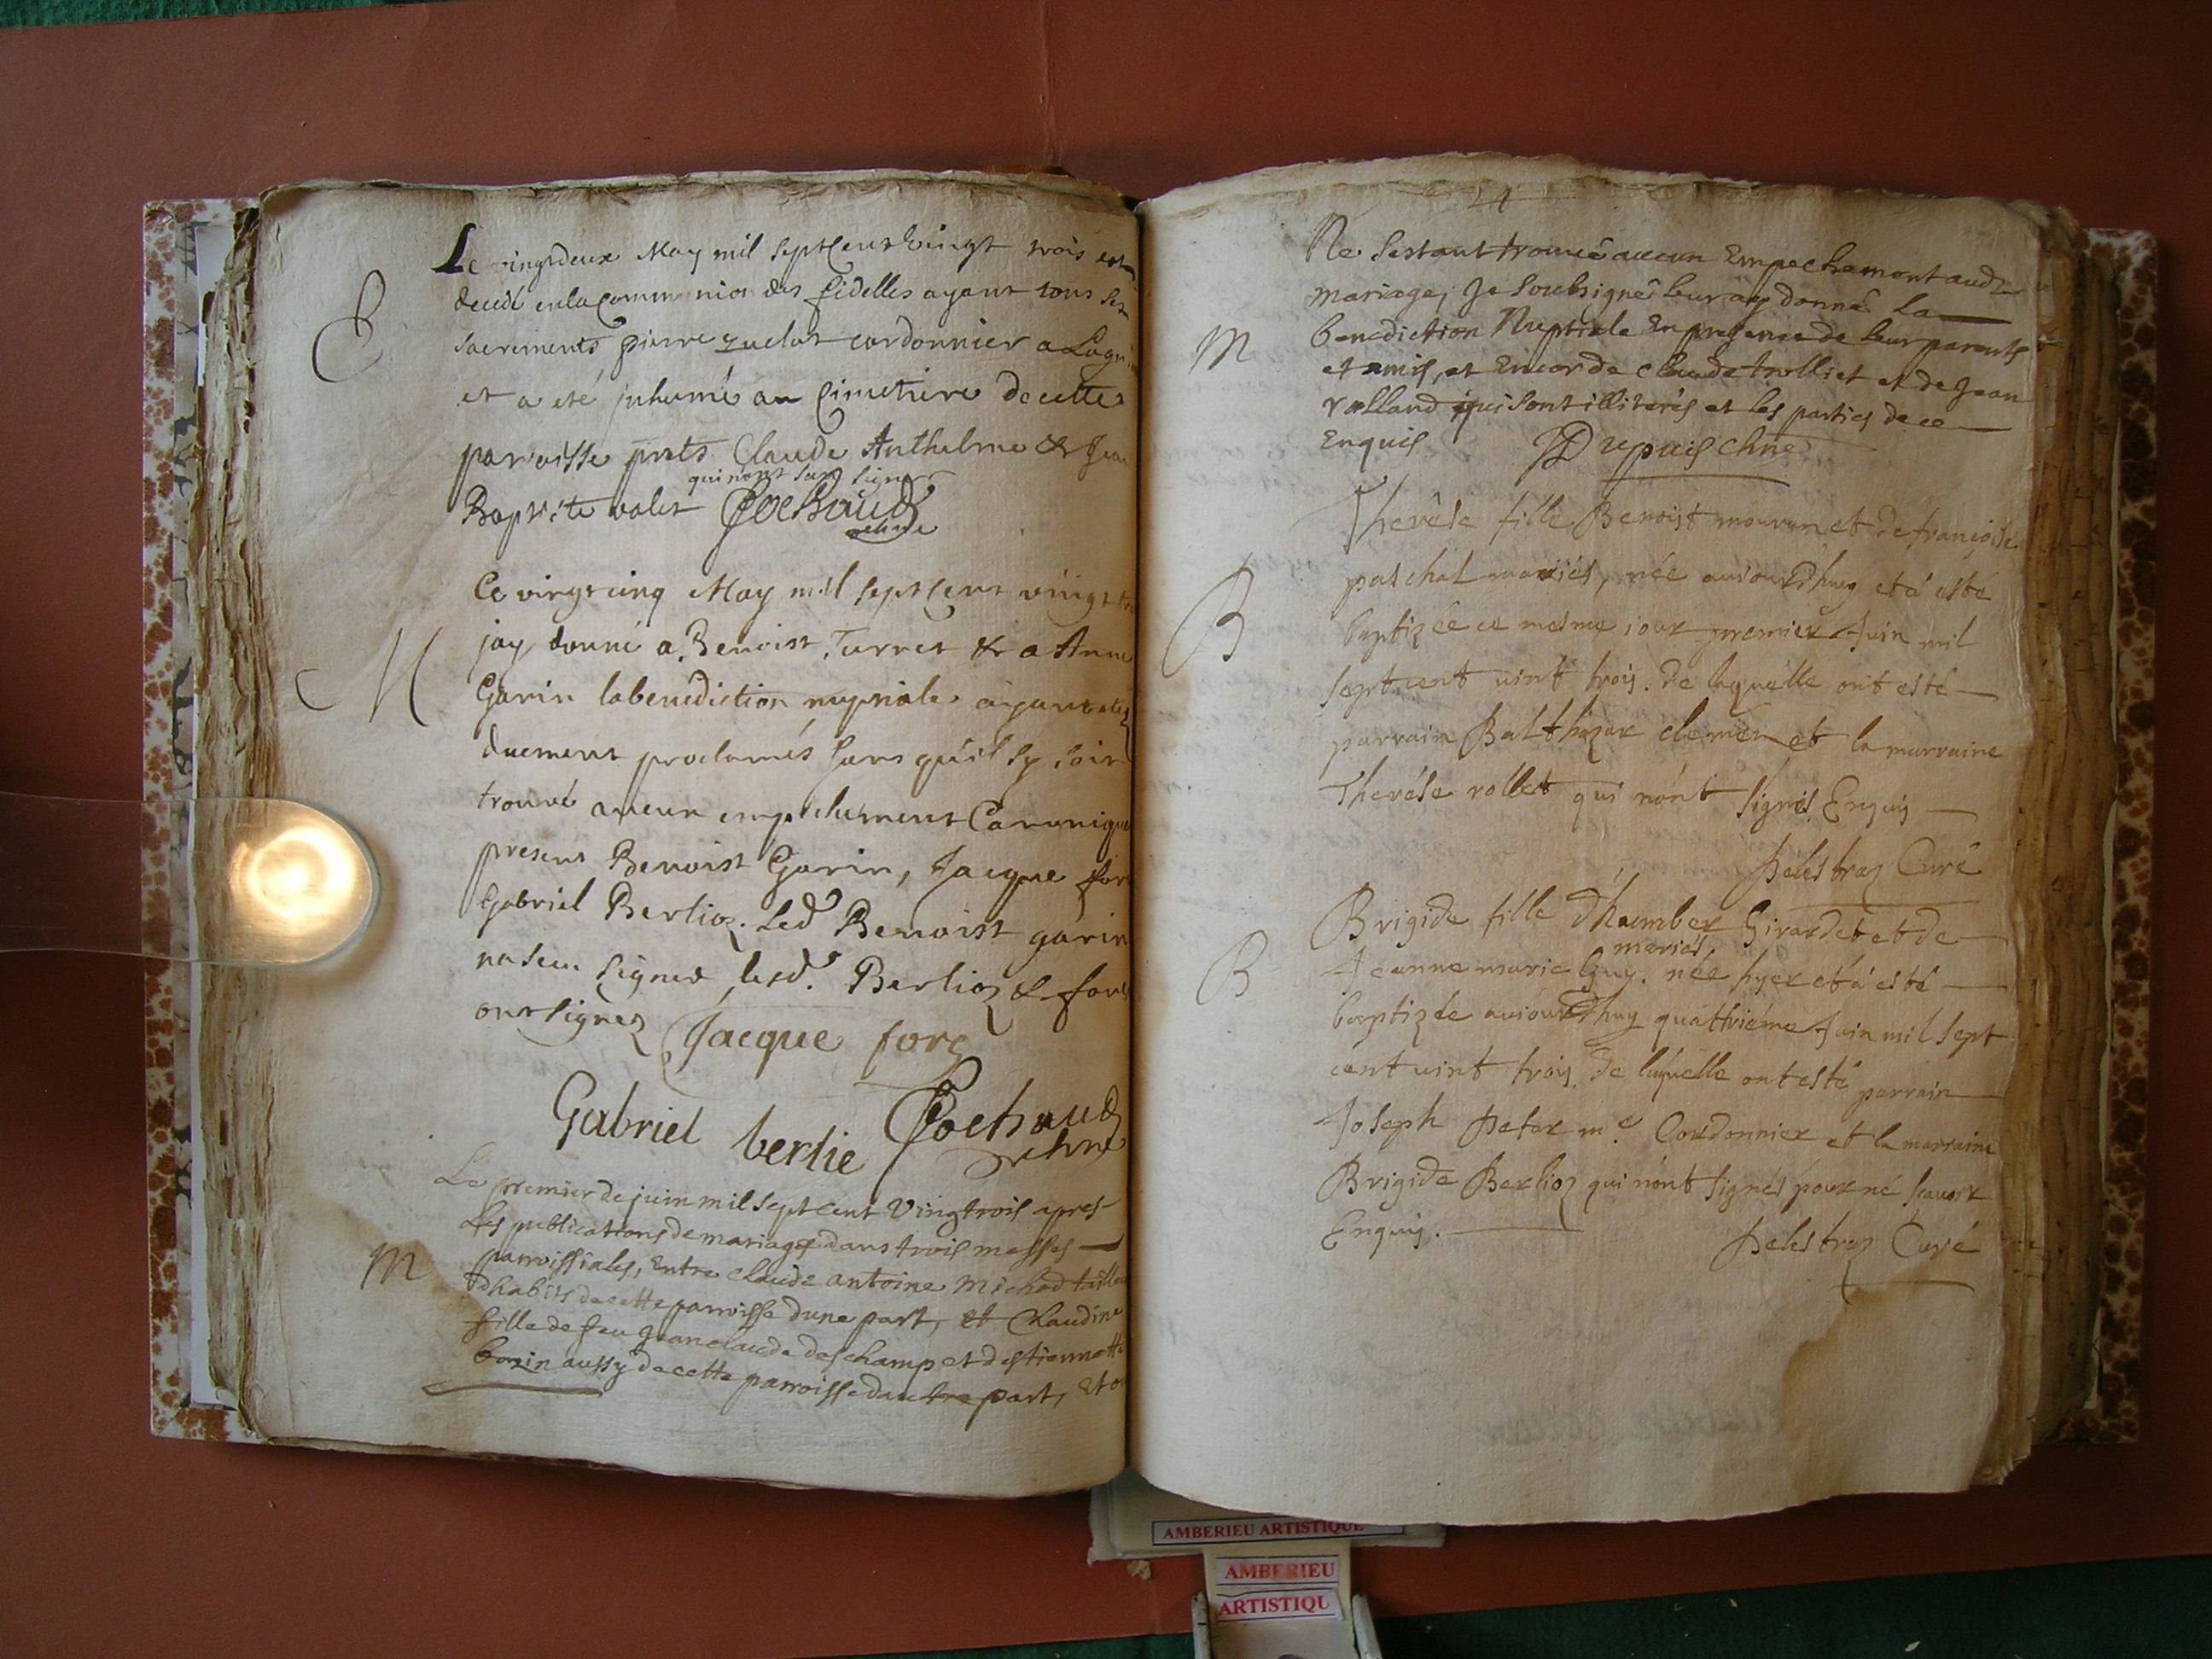 Le vingtdeux May mil Sept Cent vingt trois est
decedé en la Communion des fidelles ayant tous ses
E
sacrements pierre cordonnier a
et a eté jnhumé au Cimetiere de cette
parroisse pnts Claude Anthelme & Jean
qui n'ont sceu signer
Baptiste valet Cochaud
Ce vingt cinq May mil Sept Cent vingt
jay donné a Benoist Turret & a Anne
M
Garin la benediction nuptiale aÿant
duement proclamés sans qu'il sy soit
trouvé aucun empechement Canonique
present Benoist Garin, Jacque
Gabriel Berlioz. Led Benoist garin
na sceu signer, lesd. Berlioz &
ont signez Jacque forg
Gabriel berlie Cochaud
Le premier de juin mil Sept Cent Vingtrois apres
Les publications de mariage dans trois messes
M
parroissiales, Entre Claude antoine Michod
dhabits de cette parroisse dune part, Et Claudine
fille de feu Jean claude deschamp et destiennette
bozin aussy de cette parroisse dautre part, Et
24
Ne sestant trouvé aucun Empechemont aud
mariage, Je Soubsigné leur ay donné La
M
benediction Nuptiale En presence de leur parents
et amis, et Encor de Claude trolliet et de Jean
rolland qui sont illiterés et les parties de ce
Enquis Dupuis
Therése fille Benoist mouron et de françoise
paschal mariés, née auiourdhuy et a esté
B
baptizée ce mesme iour premier Juin mil
sept cent vint trois. de laquelle ont esté
parrain Balthazar clemen et la marraine
Therése rollet qui nónt signés Enquis
Delestraz Curé
Brigide fille Dhumber Girardet et de
mariés
B
Jeanne marie Guy. née hyer et a esté
baptizée auiourdhuy quattriéme Juin mil sept
cent vint trois. de laquelle ont esté parrain
Joseph me Cordonnier et la marraine
Brigide Berlioz qui nónt signés pour né scavoir
Enquis.
Delestraz Curé
AMBERIEU ARTISTIQUE
AMBERIEU
ARTISTIQU